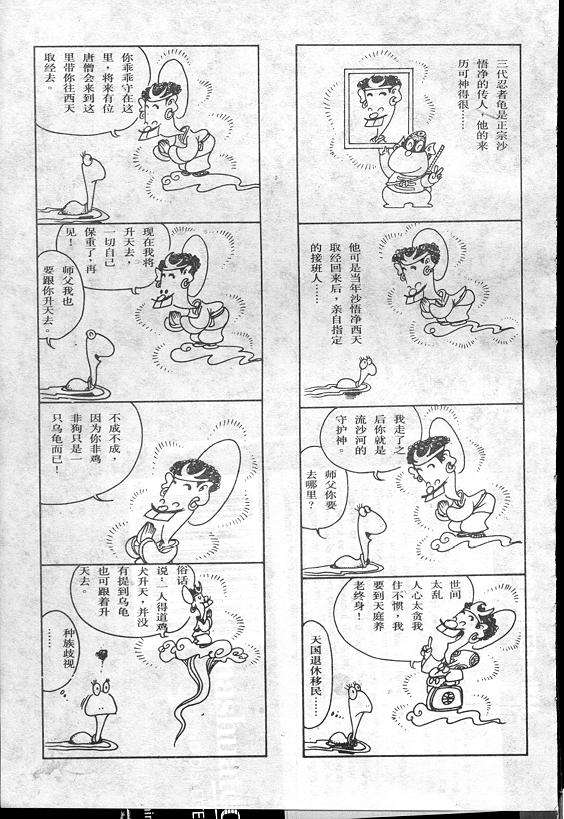 三代忍者龟是正宗沙
悟净的传人，他的来
历可神得很……
他可是当年沙悟净西天
取经回来后，亲自指定
的接班人……
我走了之
后你就是
流沙河的
守护神。
师父你要
去哪里？
世间
太乱
人心太贪我
住不惯，我
要到天庭养
老终身！
天国退休移民……
你乖乖守在这
里，将来有位
唐僧会来到这
里带你往西天
取经去。
现在我将
升天去，
一切自己
保重了，再
见！
师父我也
要跟你升天去。
不成不成，
因为你非鸡
非狗只是一
只乌龟而已！
俗话
说：一人得道鸡
犬升天，并没
有提到乌龟
也可跟着升
天去。
种族歧视
……